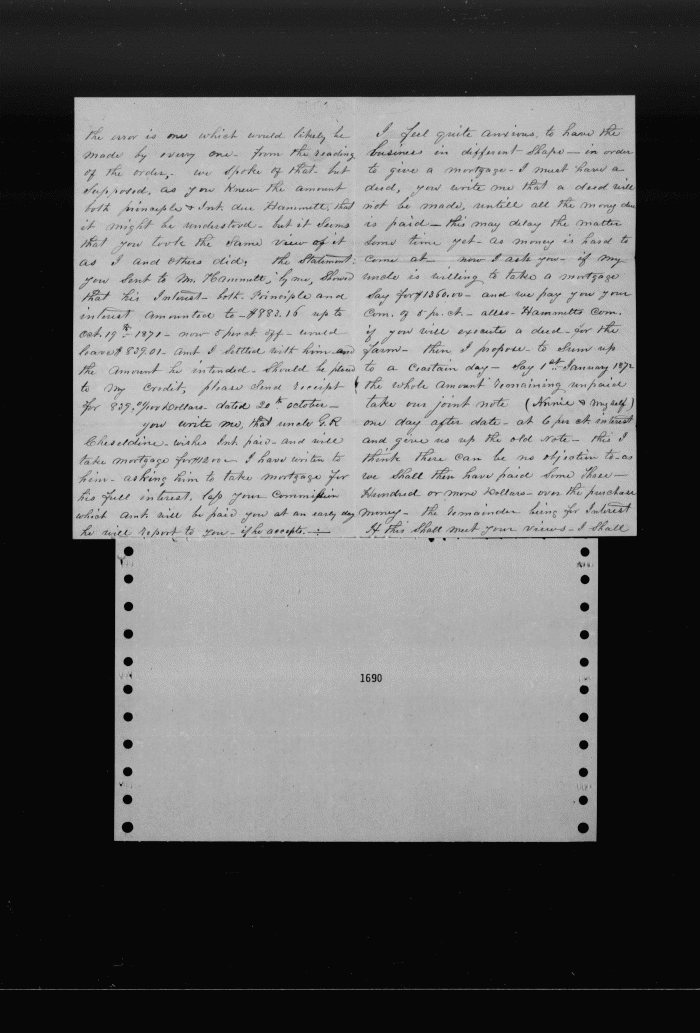 the error is one which would likely be
made by every one from the reading
of the order, we spoke of that but
supposed, as you knew the amount
both principle & Int. due Hammett, that
it might be understood - but it seems
that you took the same view of it
as I and others did, the Statement
you sent to Mr. Hammett, by me, showed
that his Interest both Principle and
interest amounted to $883.16 up to
Oct. 19th 1871 - now 5 per ct off would
leave $839.01 - Amt I settled with him and
the amount he intended should be placed
to my Credit, please send receipt
for 839. 01/100 Dollars dated 20th October -
you write me, that uncle G.R
Cheseldine wishes Int. paid - and will
take mortgage for $1200 - I have writen to
him - asking him to take mortgage for
his full interest, less your Commission
which amt. will be paid you at an early day
he will report to you - if he accepts. -
I feel quite anxious, to have the
business in different shape - in order
to give a mortgage - I must have a
deed, you write me that a deed will
not be made, untill all the money due
is paid - this may delay the matter
some time yet - as money is hard to
come at - now I ask you - if my
uncle is willing to take a mortgage
say for $1360.00 - and we pay you your
Com. of 5 p. ct. - alls Hammetts Com.
if you will execute a deed for the
farm - then I propose to sum up
to a Ceartain day - Say 1st January 1872
the whole amount remaining unpaid
take our joint note (Annie & myself)
one day after date - at 6 per ct interest
and give us up the old note - this I
think there can be no objection to - as
we shall then have paid some three -
Hundred or more Dollars - over the purchase
money - the remainder being for Interest
If this shall meet your views - I shall
1690